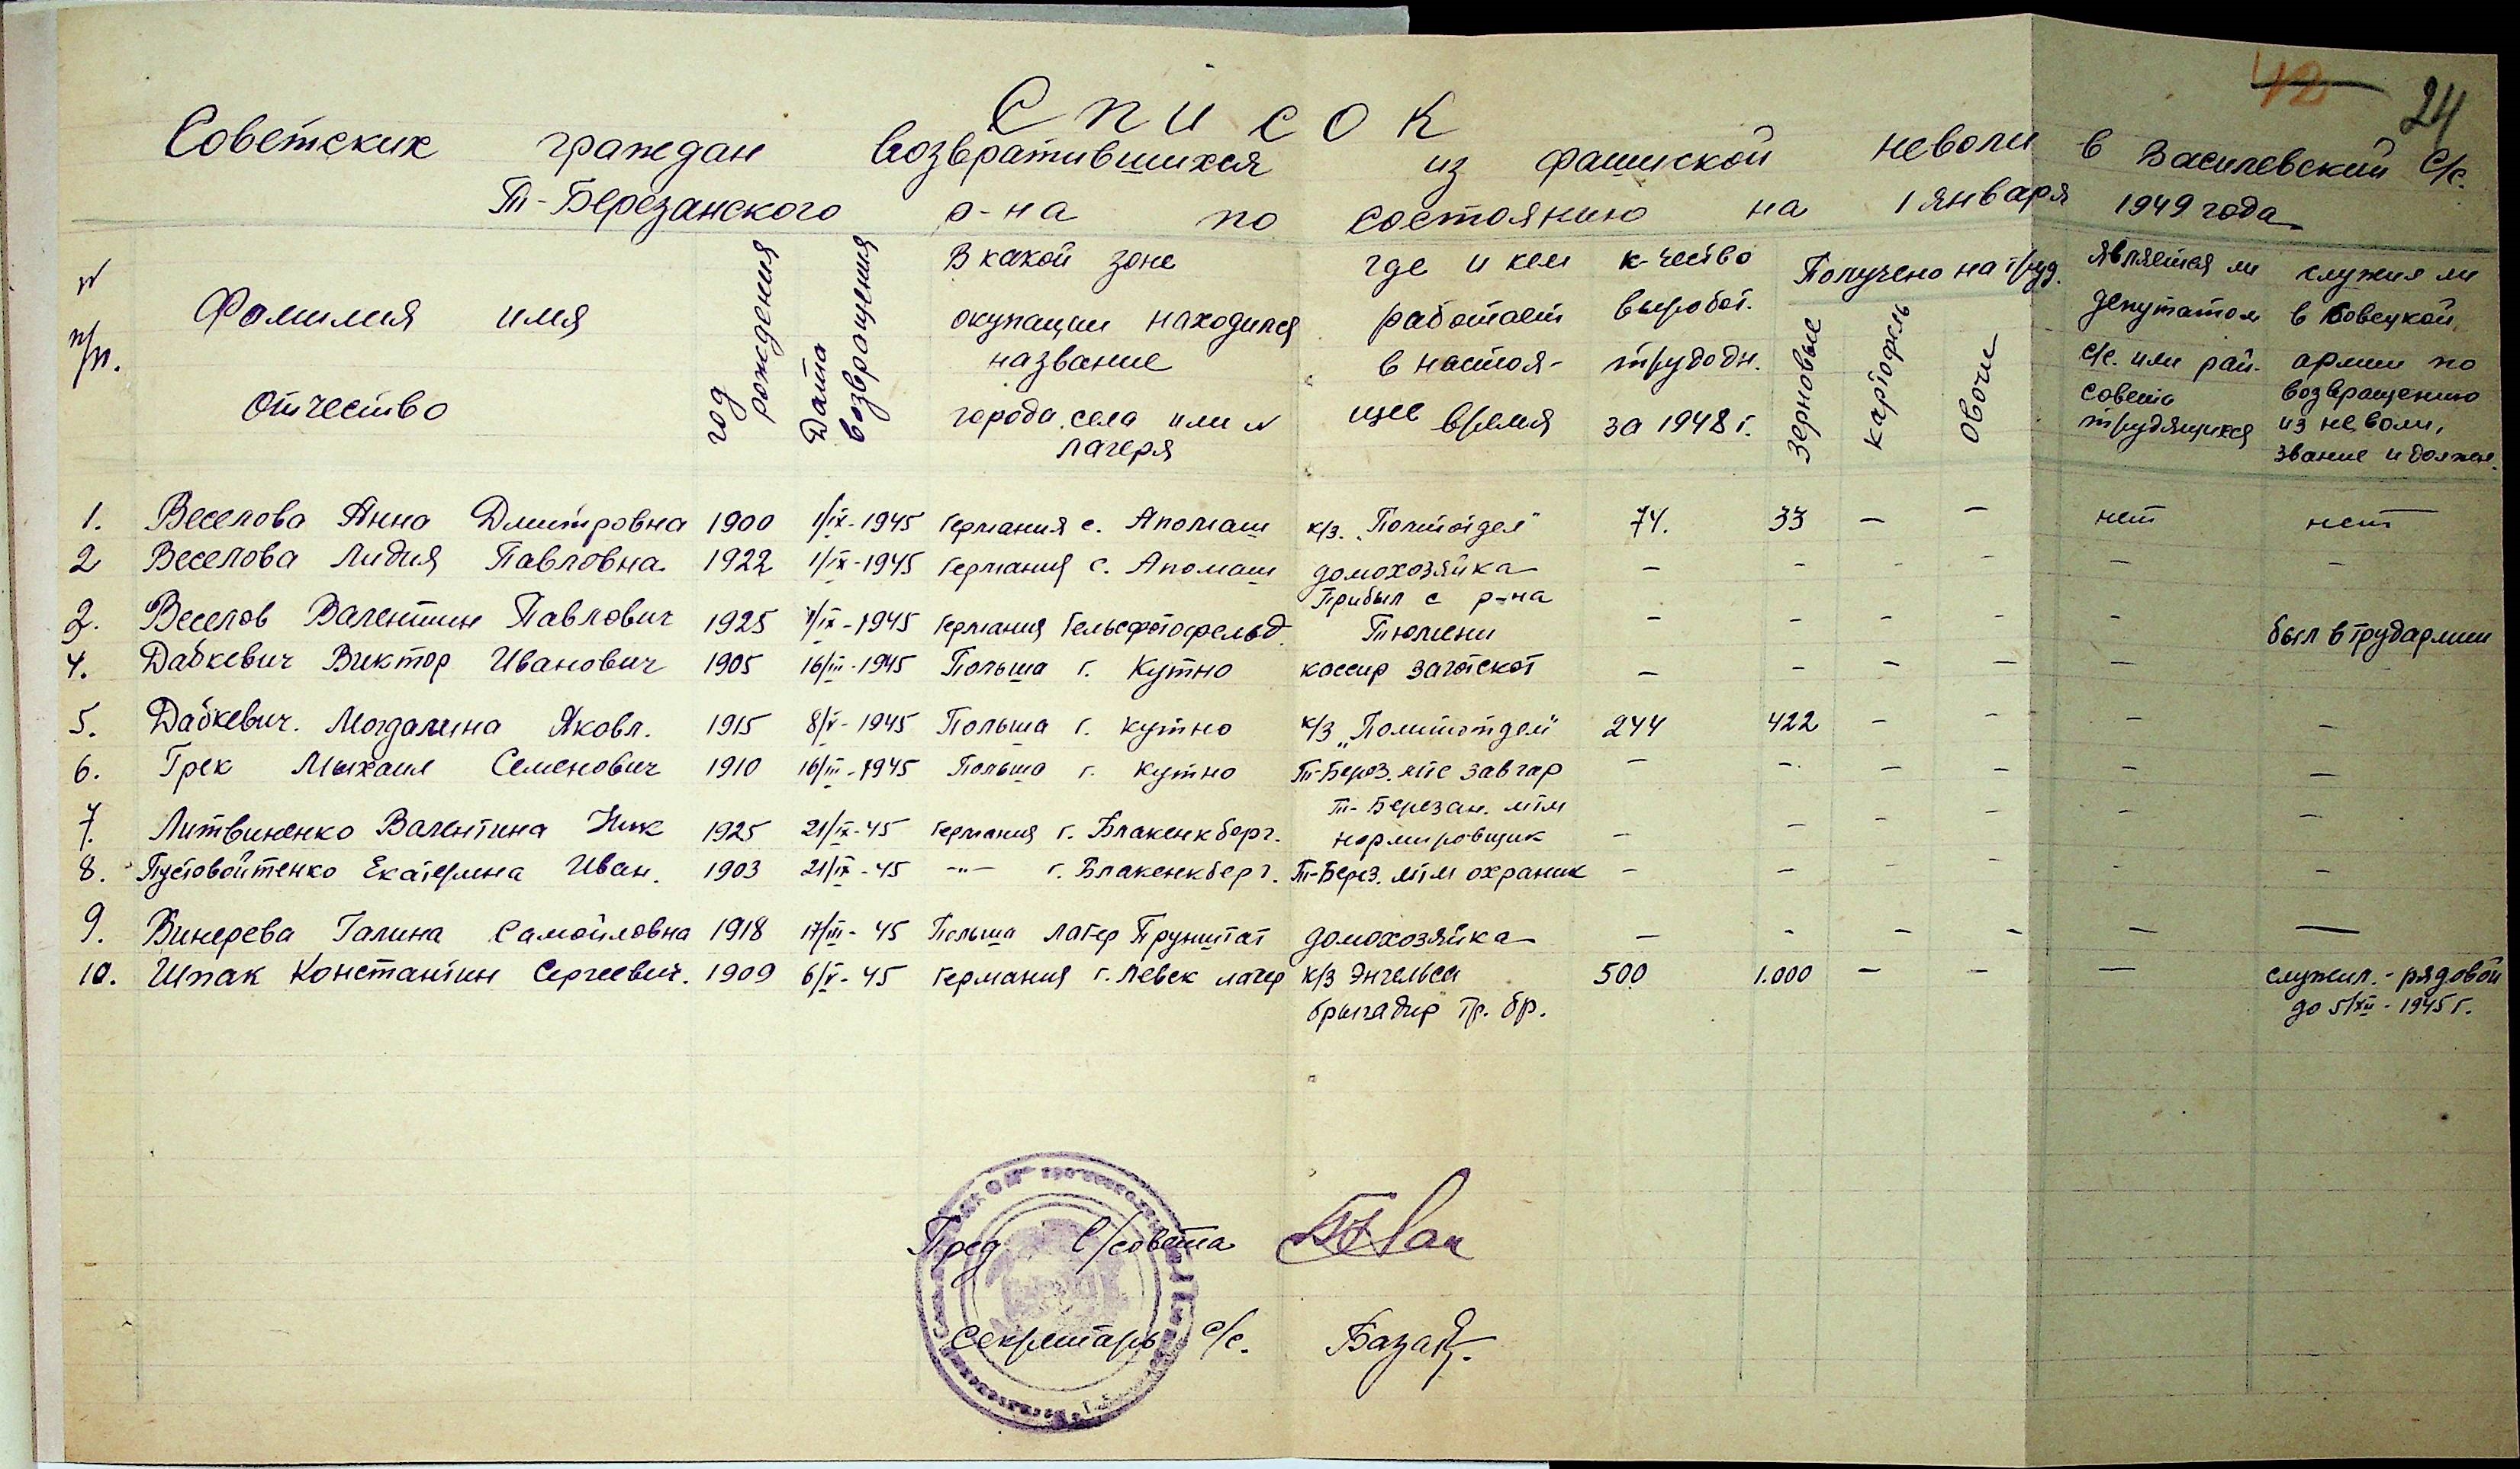 42 24
Список
Советских граждан возвратившихся из фашиской неволи в Василевский с/с.
Т-Березанского р-на по состоянию на 1 января 1949 года
№ п/п.
Фамилия имя
Отчество
год рождения
Дата возвращения
В какой зоне
окупации находился
название
города, села или №
лагеря
где и кем
работает
в настоя-
щее время
к-чество
выработ.
трудодн.
за 1948 г.
Получено на труд.
зерновые
картофель
овочи
является ли
депутатом
с/с. или рай-
совета
трудящихся
служил ли
в Совецкой
армии по
возвращению
из неволи,
звание и должн.
1. Веселова Анна Дмитровна 1900 1/IX-1945 Германия с. Аполмаш к/з. „Политотдел" 74. 33 — — нет нет
2 Веселова Лидия Павловна 1922 1/IX-1945 Германия с. Апомаш домохозяйка — — - - — —
Прибыл с р-на
2. Веселов Валентин Павлович 1925 1/IX-1945 Германия Гельсфотофельд Тюмени — - - - — был в трудармии
4. Дабкевич Виктор Иванович 1905 16/III-1945 Польша г. Кутно кассир заготскот — — — — —
5. Дабкевич. Магдалина Яковл. 1915 8/V-1945 Польша г. кутно к/з „Политотдел" 244 422 — - — —
6. Грек Мыхаил Семенович 1910 16/III-1945 Польша г. Кутно Т-Берез. мтс завгар — — — — — —
Т-Березан. мтм
7. Литвиненко Валентина Ник 1925 21/IX-45 Германия г. Блакенкберг. нормировщик — — - - - —
8. Пустовойтенко Екатерина Иван. 1903 21/IX-45 —"— г. Блакенкберг. Т-Берез. мтм охраник — — - - - -
9. Винерева Галина Самойловна 1918 17/III-45 Польша лагер Прунштат домохозяйка — - — — — —
10. Шпак Константин Сергеевич. 1909 6/V-45 Германия г. Левек лагер к/з Энгельса 500 1.000 — — — служил.-рядовой
брыгадир тр. бр. до 5/XII-1945 г.
Пред с/совета
Секретарь с/с.